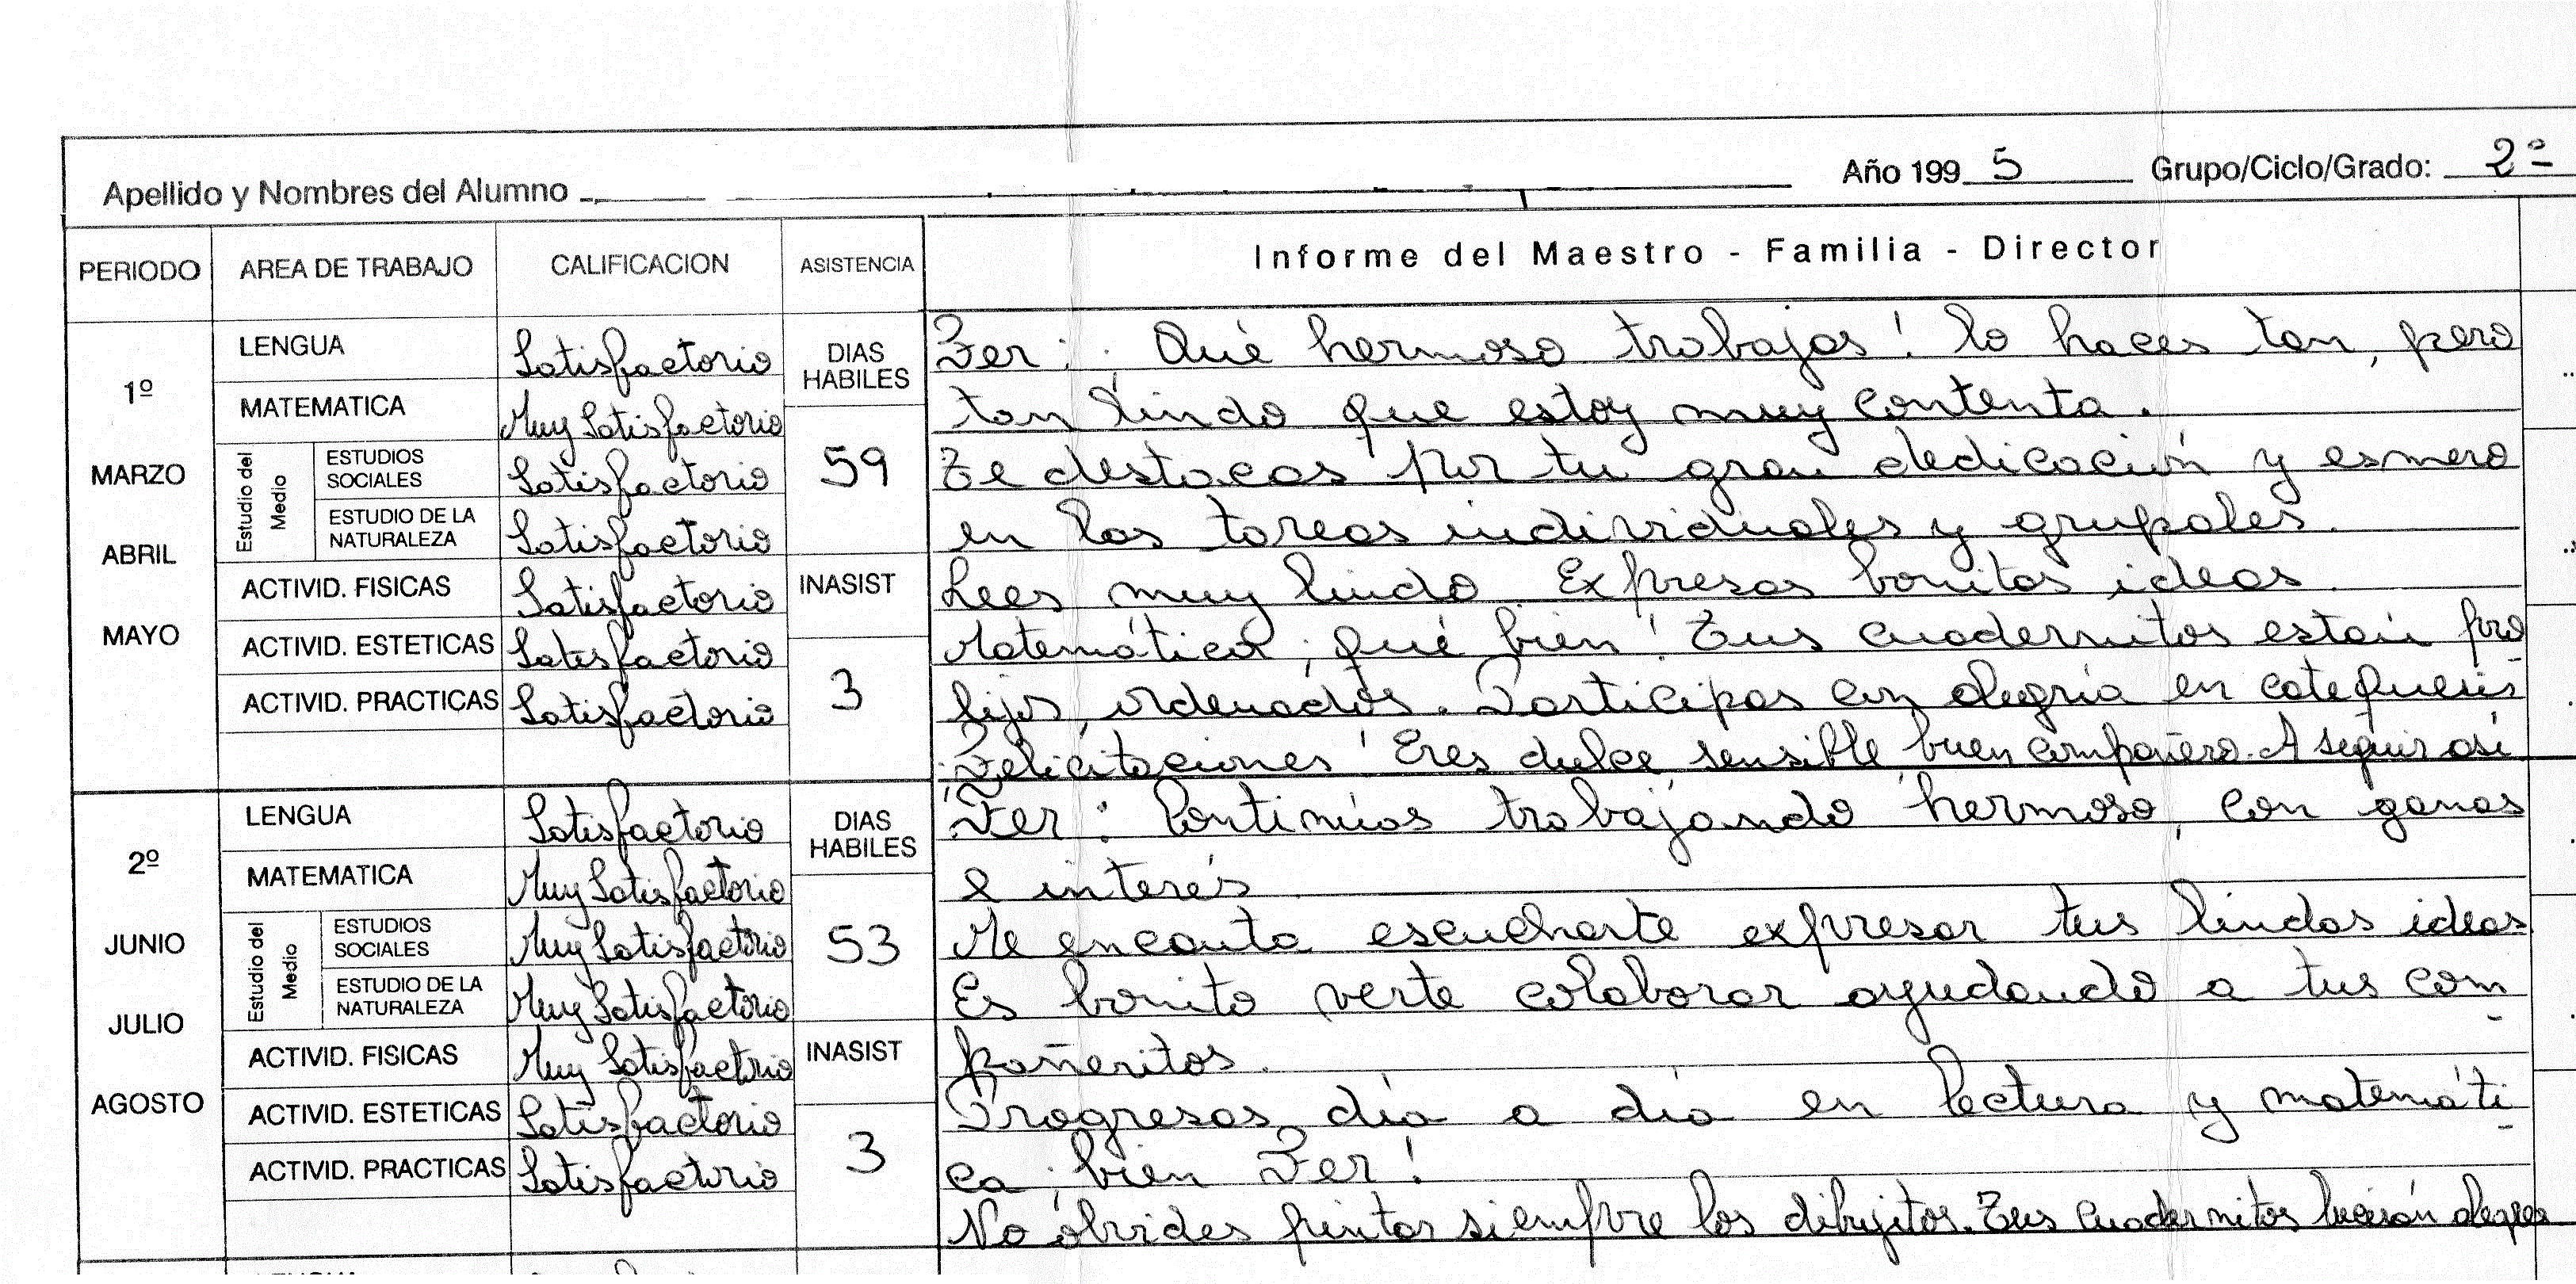 Apellido y Nombres del Alumno Año 199 5 Grupo/Ciclo/Grado: 2º
PERIODO AREA DE TRABAJO CALIFICACION ASISTENCIA Informe del Maestro - Familia - Director
1º
MARZO
ABRIL
MAYO
LENGUA Satisfactorio
MATEMATICA Muy Satisfactorio
Estudio del Medio
ESTUDIOS SOCIALES Satisfactorio
ESTUDIO DE LA NATURALEZA Satisfactorio
ACTIVID. FISICAS Satisfactorio
ACTIVID. ESTETICAS Satisfactorio
ACTIVID. PRACTICAS Satisfactorio
DIAS HABILES
59
INASIST
3
Fer: ¡Qué hermoso trabajas! lo haces tan, pero
tan lindo que estoy muy contenta.
Te destacas por tu gran dedicación y esmero
en las tareas individuales y grupales.
Lees muy lindo. Expresas bonitas ideas.
Matemática ¡qué bien! Tus cuadernitos están pro
lijos, ordenados. Participas con alegría en catequesis
¡Felicitaciones! Eres dulce, sensible, buen compañero. A seguir así
2º
JUNIO
JULIO
AGOSTO
LENGUA Satisfactorio
MATEMATICA Muy Satisfactorio
Estudio del Medio
ESTUDIOS SOCIALES Muy Satisfactorio
ESTUDIO DE LA NATURALEZA Muy Satisfactorio
ACTIVID. FISICAS Muy Satisfactorio
ACTIVID. ESTETICAS Satisfactorio
ACTIVID. PRACTICAS Satisfactorio
DIAS HABILES
53
INASIST
3
Fer: Continúas trabajando hermoso, con ganas
e interés
Me encanta escucharte expresar tus lindas ideas
Es bonito verte colaborar ayudando a tus com-
pañeritos.
Progresas día a día en lectura y matemáti-
ca ¡bien Fer!
No olvides pintar siempre los dibujitos. Tus cuadernitos lucirán alegres